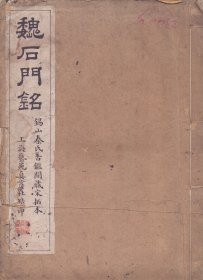 魏石門銘
錫山秦氏古鑑閣藏宋拓本
上海藝苑真賞社精印